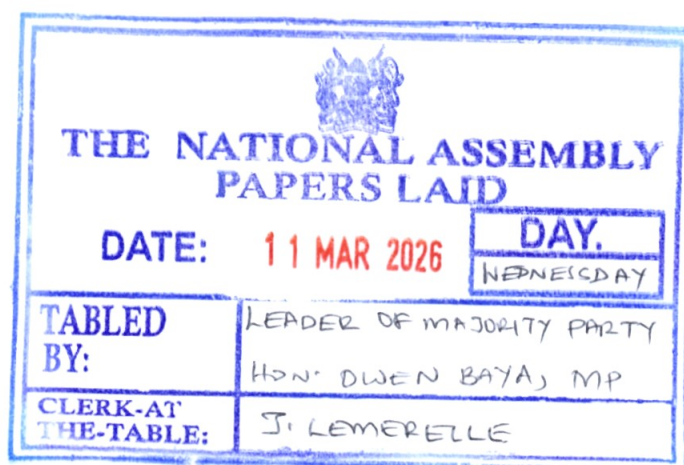 THE NATIONAL ASSEMBLY
PAPERS LAID
DATE: 11 MAR 2026
DAY.
WEDNESDAY
TABLED BY:
LEADER OF MAJORITY PARTY
HON. OWEN BAYA, MP
CLERK-AT THE-TABLE:
J. LEMERELLE